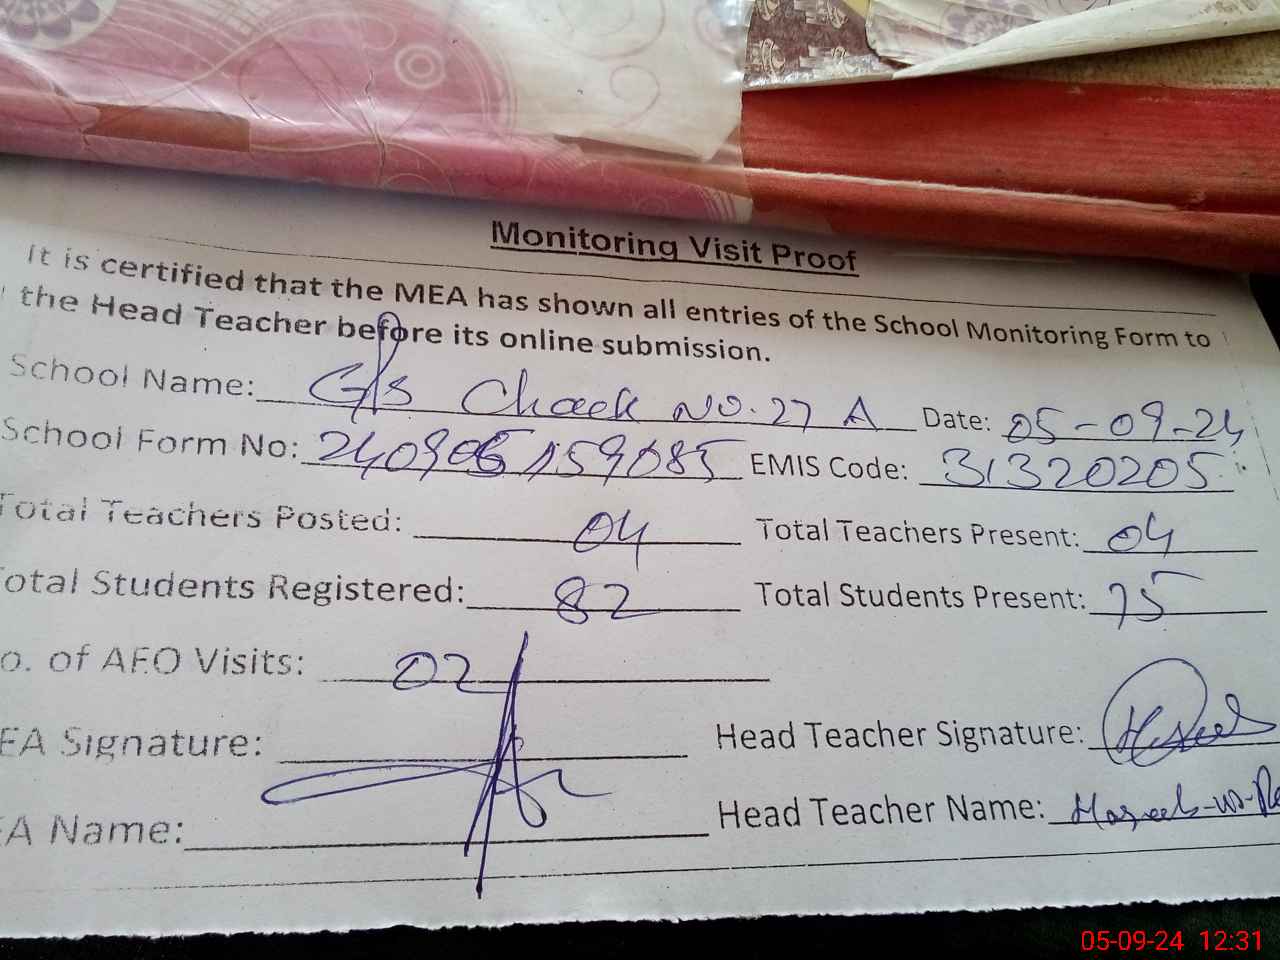 Monitoring Visit Proof
It is certified that the MEA has shown all entries of the School Monitoring Form to
the Head Teacher before its online submission.
School Name: G/s Chack No. 27 A Date: 05-09-24
School Form No: EMIS Code: 31320205
Total Teachers Posted: 04 Total Teachers Present: 04
Total Students Registered: 82 Total Students Present: 75
o. of AEO Visits: 02
EA Signature: Head Teacher Signature:
EA Name: Head Teacher Name: Haseeb-ur-Re
05-09-24 12:31